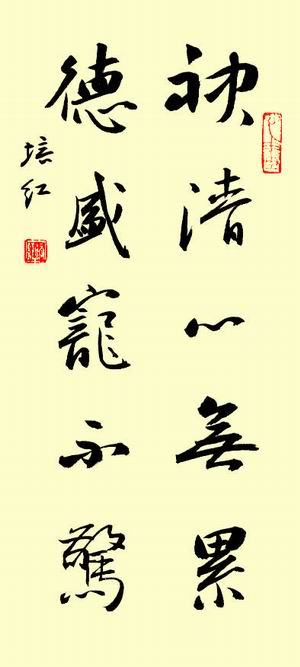 神清心無累
德盛寵不驚
培红